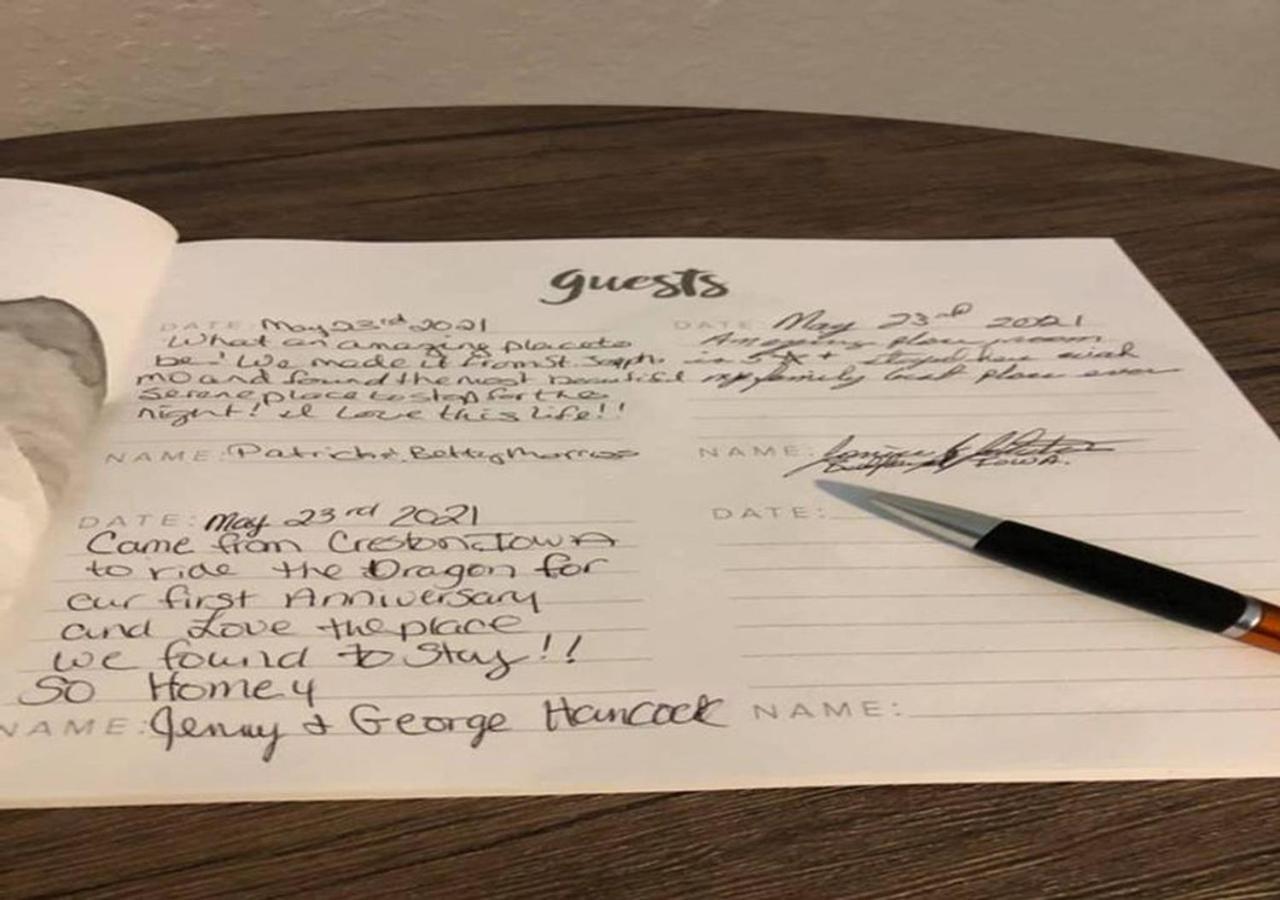 guests
DATE: May 23rd 2021
What an amazing place to
be! We made it from St. Joseph
MO and found the most beautiful
serene place to stop for the
night! I Love this life!!
NAME: Patrick & Betty
DATE: May 23rd 2021
Came from Creston, IOWA
to ride the Dragon for
our first Anniversary
and Love the place
we found to Stay!!
SO Homey
NAME: Jenny & George Hancock
DATE: May 23rd 2021
Amazing place room
is 5 ☆ + stayed here with
my family best place ever
NAME:
IOWA.
DATE:
NAME: